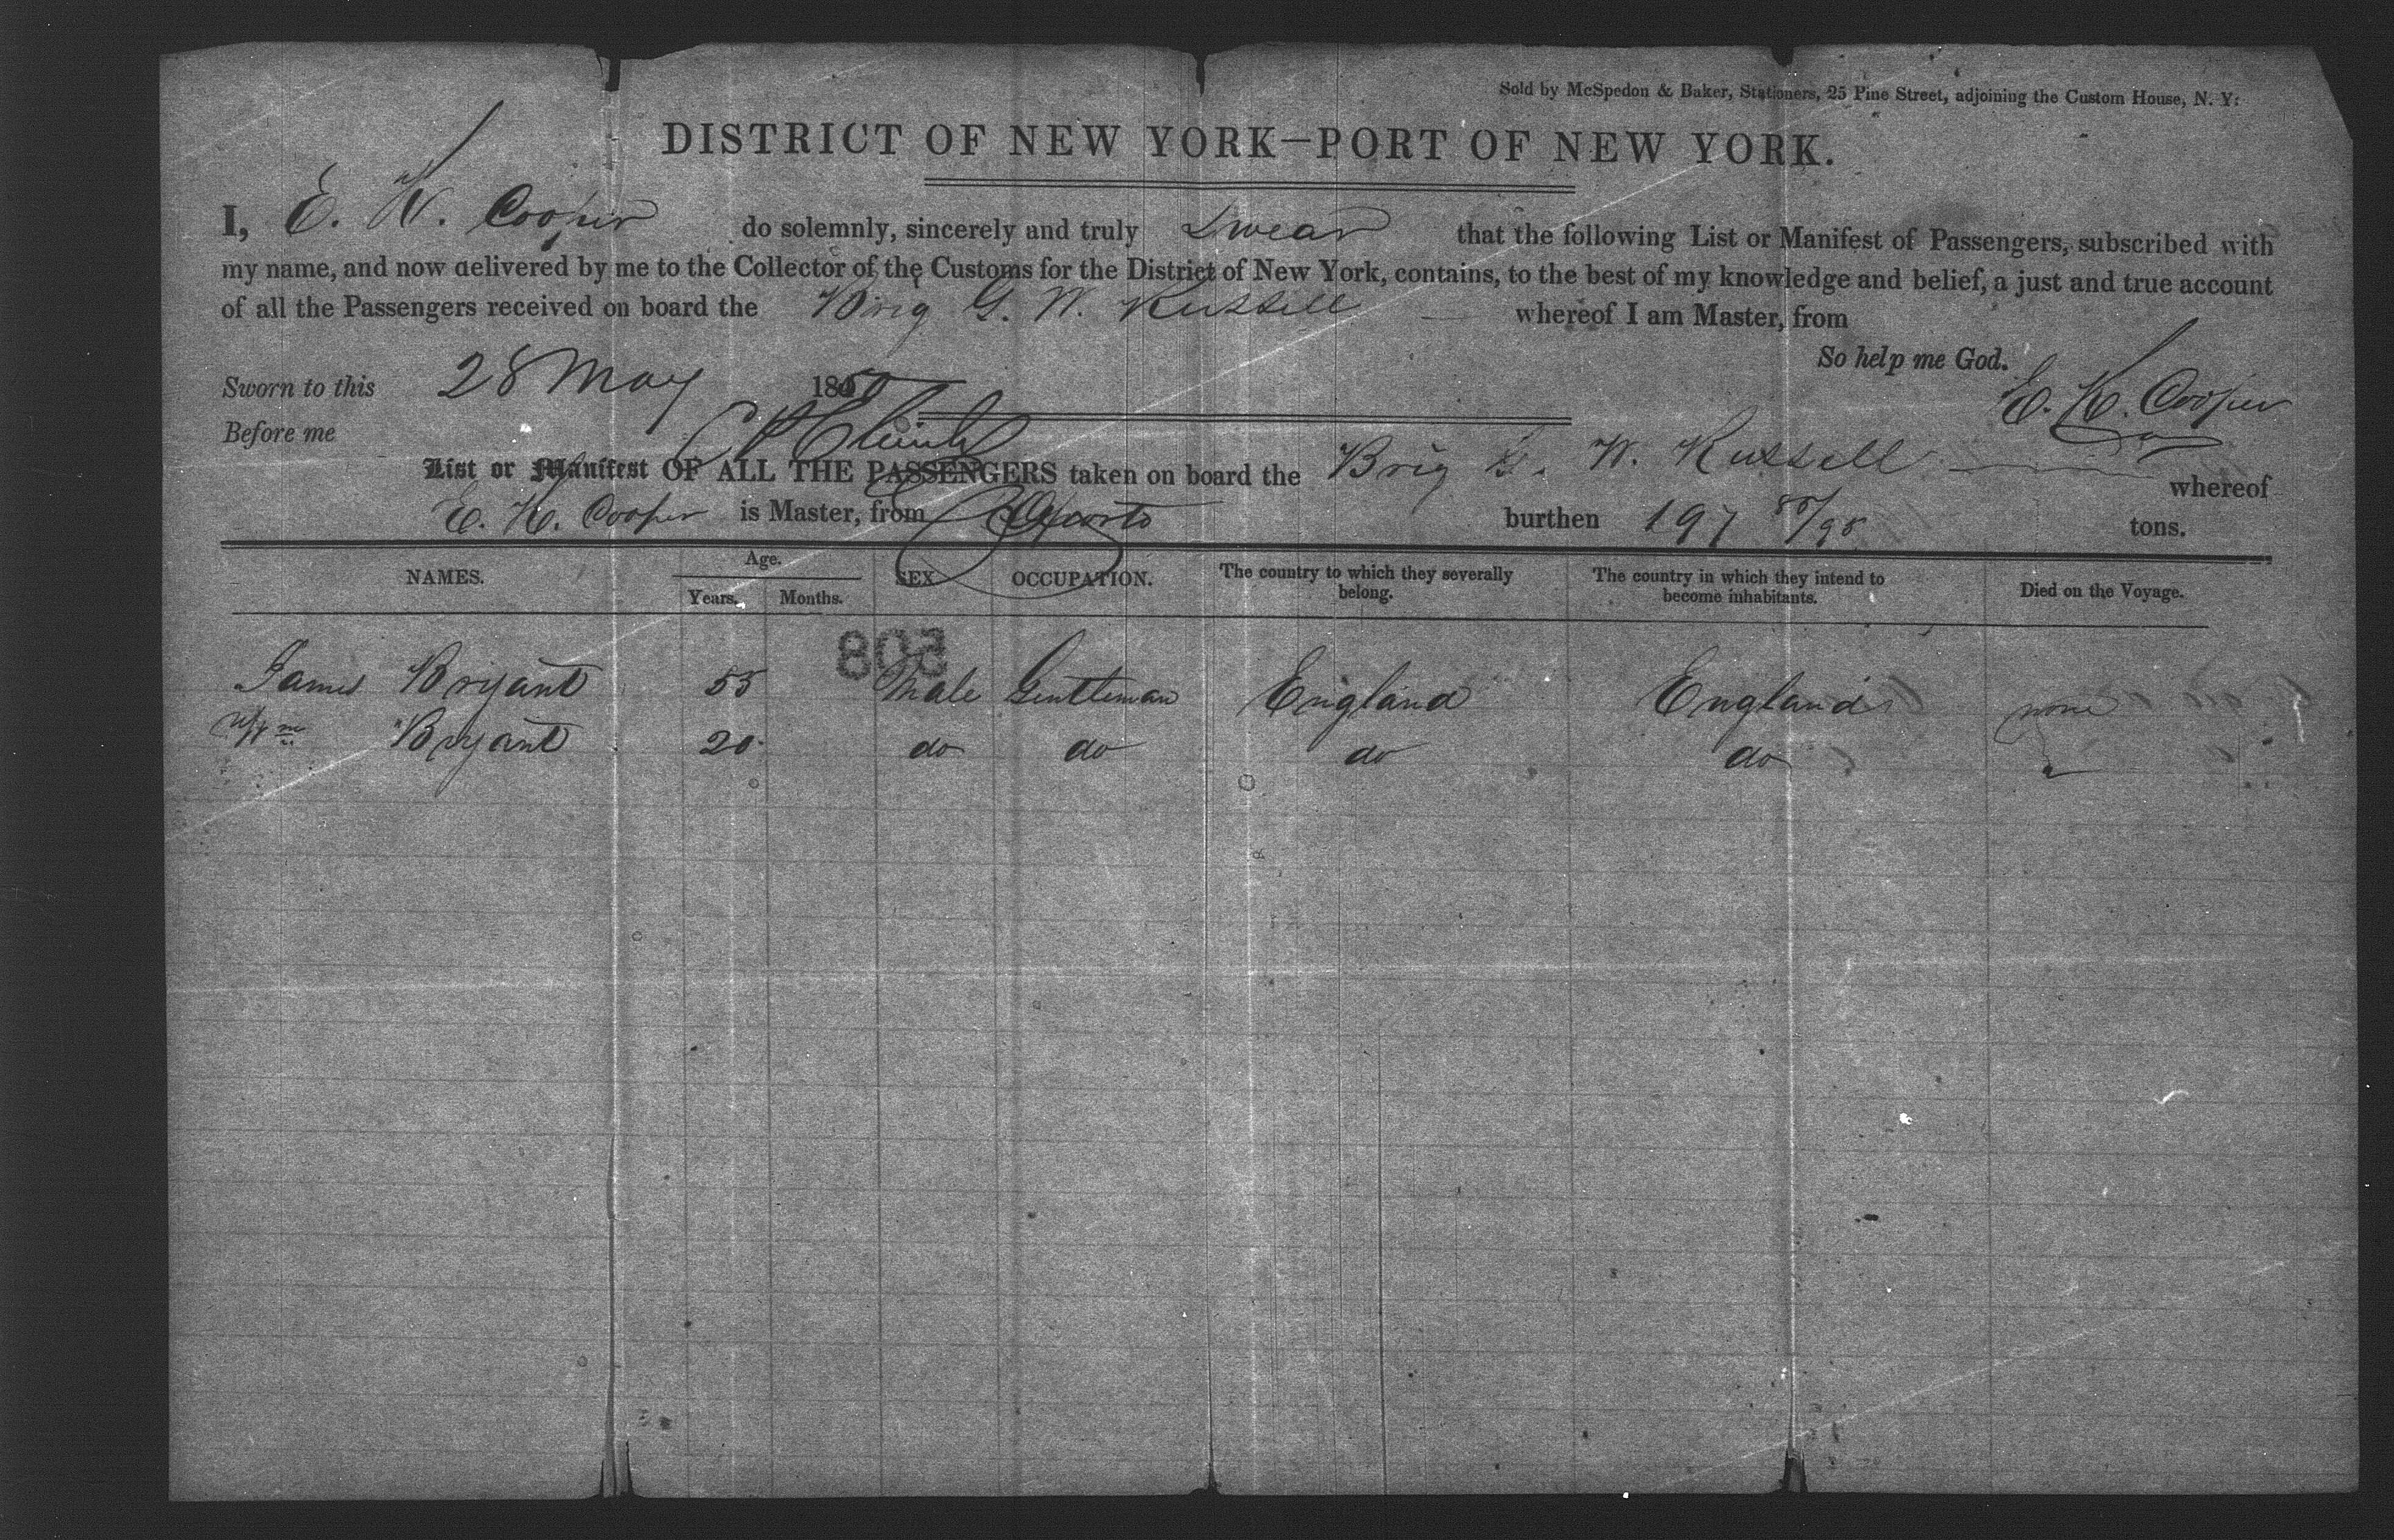 Sold by McSpedon & Baker, Stationers, 25 Pine Street, adjoining the Custom House, N. Y:
DISTRICT OF NEW YORK—PORT OF NEW YORK.
I, E. K. Cooper do solemnly, sincerely and truly Swear that the following List or Manifest of Passengers, subscribed with
my name, and now delivered by me to the Collector of the Customs for the District of New York, contains, to the best of my knowledge and belief, a just and true account
of all the Passengers received on board the Brig G. W. Russell whereof I am Master, from
So help me God.
Sworn to this 28 May 1850 E. K. Cooper
Before me
List or Manifest OF ALL THE PASSENGERS taken on board the Brig G. W. Russell whereof
E. K. Cooper is Master, from Oporto burthen 197 tons.
NAMES. Age. Years. Months. SEX OCCUPATION. The country to which they severally belong. The country in which they intend to become inhabitants. Died on the Voyage.
508
James Bryant 55 Male Gentleman England England none
Wm Bryant 20 do do do do "